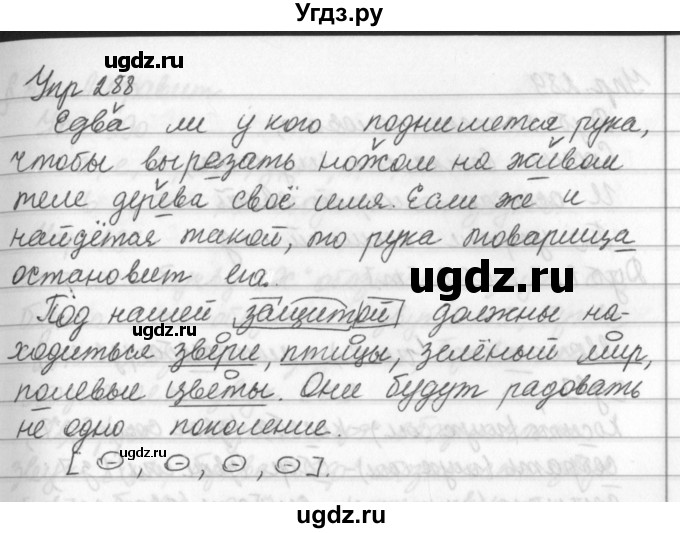 Угдз.ру
Упр 288
Едва ли у кого поднимется рука,
чтобы вырезать ножом на живом
теле дерева своё имя. Если же и
найдётся такой, то рука товарища
остановит его.
Под нашей защитой должны на-
ходиться звери, птицы, зелёный мир,
полевые цветы. Они будут радовать
не одно поколение.
[ ⊖, ⊖, ⊖, ⊖ ].
ugdz.ru
ugdz.ru
ugdz.ru
ugdz.ru
ugdz.ru
ugdz.ru
ugdz.ru